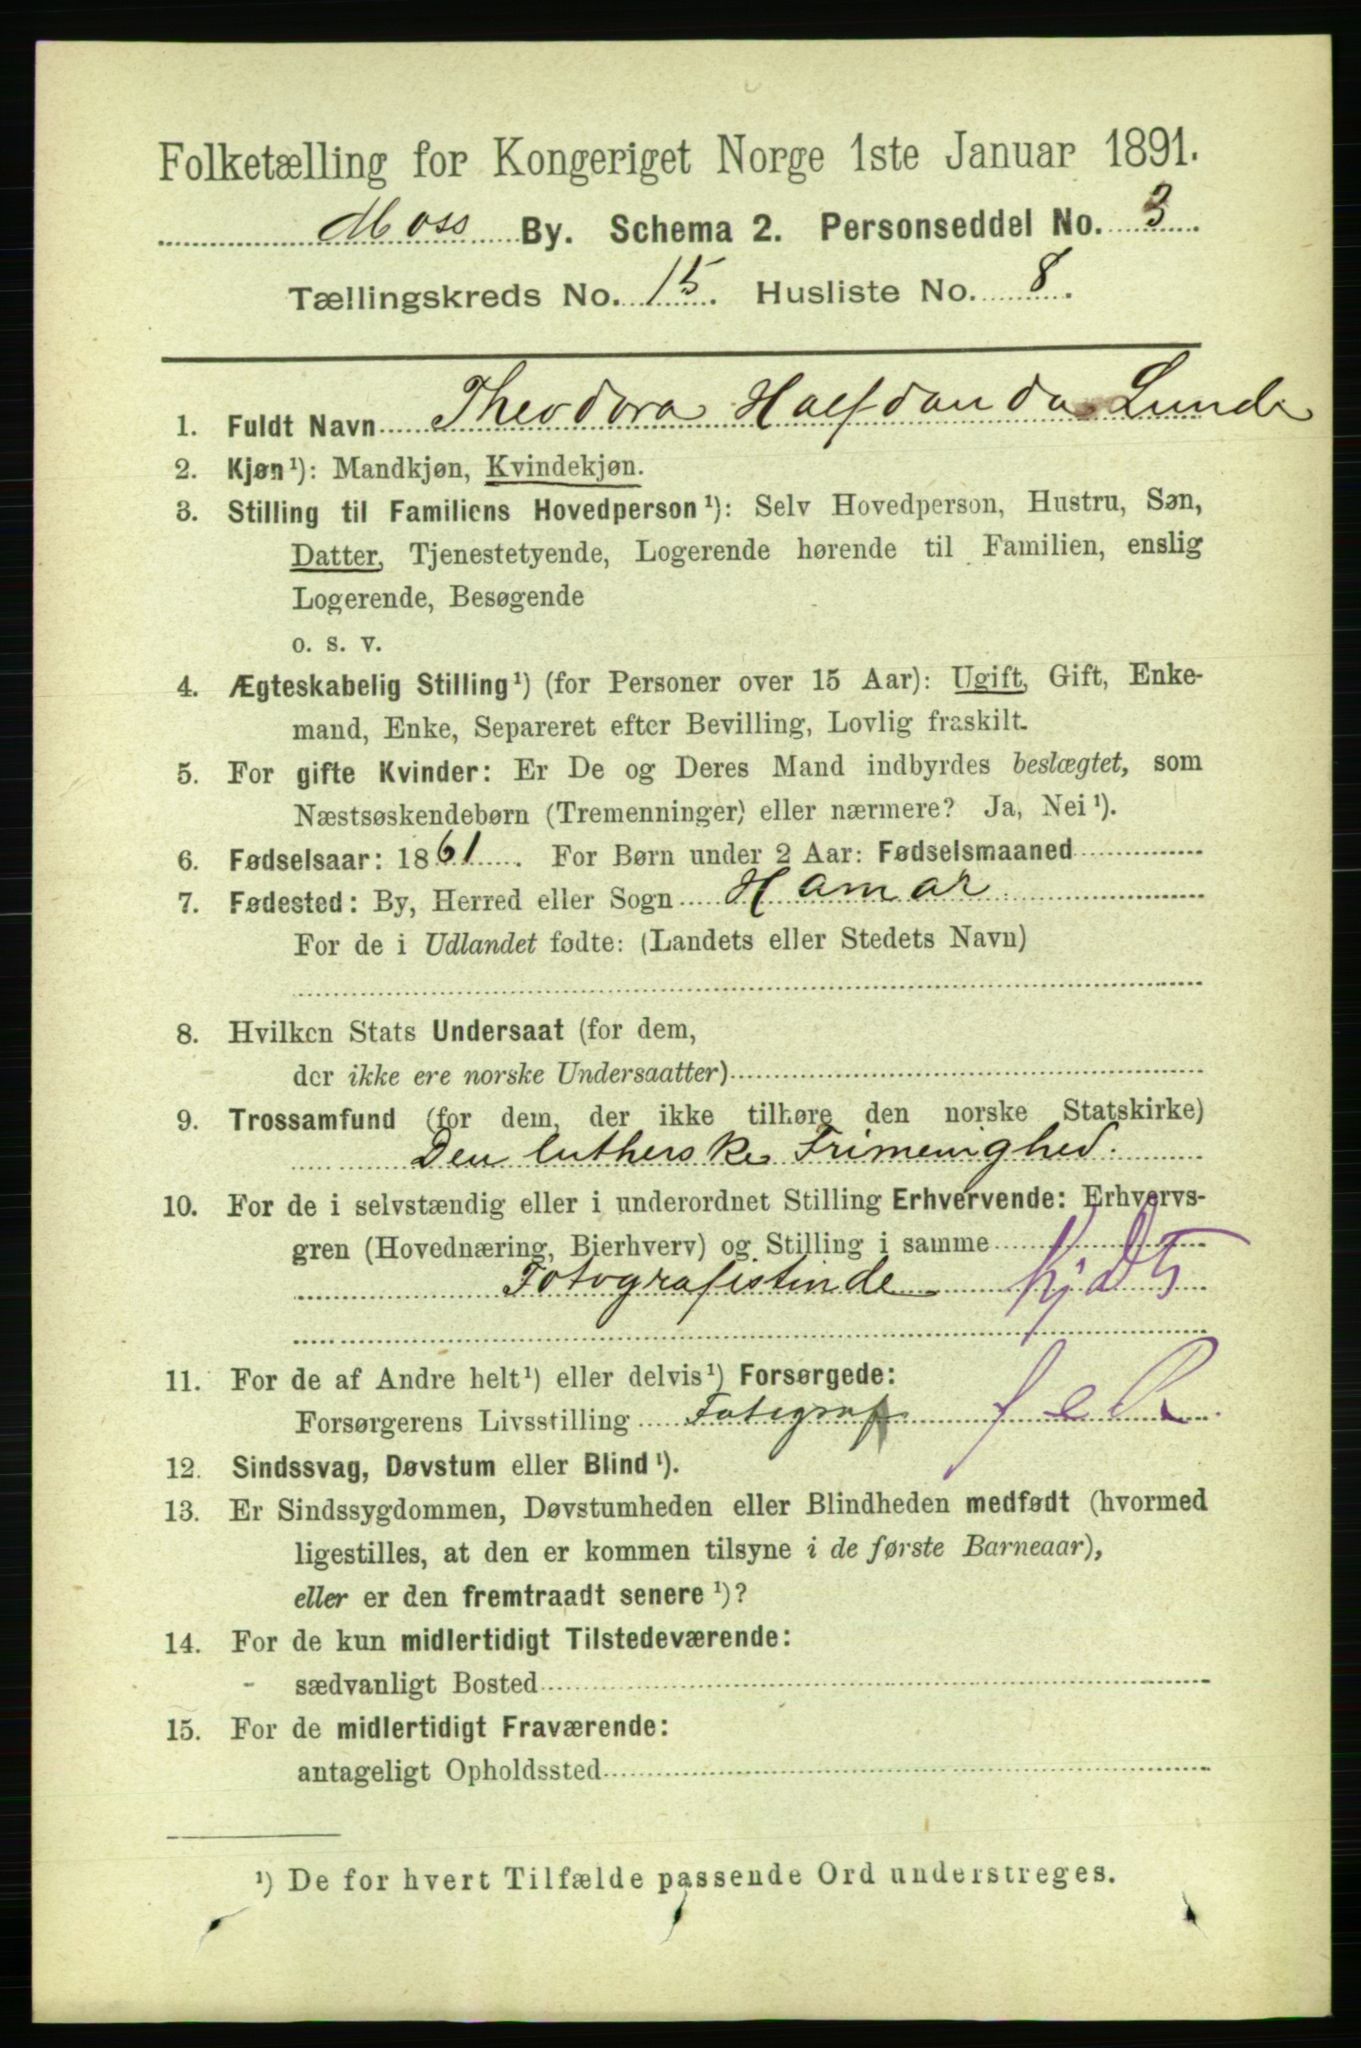 Folketælling for Kongeriget Norge 1ste Januar 1891.
Moss By. Schema 2. Personseddel No. 3.
Tællingskreds No. 15. Husliste No. 8.
1. Fuldt Navn Theodora Halfdanda Lunde
2. Kjøn¹): Mandkjøn, Kvindekjøn.
3. Stilling til Familiens Hovedperson¹): Selv Hovedperson, Hustru, Søn,
Datter, Tjenestetyende, Logerende hørende til Familien, enslig
Logerende, Besøgende
o. s. v.
4. Ægteskabelig Stilling¹) (for Personer over 15 Aar): Ugift, Gift, Enke-
mand, Enke, Separeret efter Bevilling, Lovlig fraskilt.
5. For gifte Kvinder: Er De og Deres Mand indbyrdes beslægtet, som
Næstsøskendebørn (Tremenninger) eller nærmere? Ja, Nei¹).
6. Fødselsaar: 1861. For Børn under 2 Aar: Fødselsmaaned
7. Fødested: By, Herred eller Sogn Hamar
For de i Udlandet fødte: (Landets eller Stedets Navn)
8. Hvilken Stats Undersaat (for dem,
der ikke ere norske Undersaatter)
9. Trossamfund (for dem, der ikke tilhøre den norske Statskirke)
Den lutherske Frimenighed.
10. For de i selvstændig eller i underordnet Stilling Erhvervende: Erhvervs-
gren (Hovednæring, Bierhverv) og Stilling i samme
Fotografistinde
11. For de af Andre helt¹) eller delvis¹) Forsørgede:
Forsørgerens Livsstilling Fotograf
12. Sindssvag, Døvstum eller Blind¹).
13. Er Sindssygdommen, Døvstumheden eller Blindheden medfødt (hvormed
ligestilles, at den er kommen tilsyne i de første Barneaar),
eller er den fremtraadt senere¹)?
14. For de kun midlertidigt Tilstedeværende:
sædvanligt Bosted
15. For de midlertidigt Fraværende:
antageligt Opholdssted
¹) De for hvert Tilfælde passende Ord understreges.